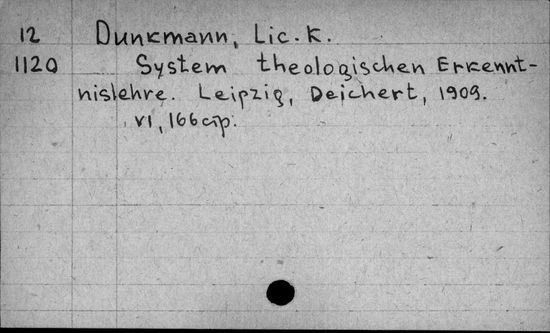 12 Dunkmann, Lic. K.
1120 System theologischen Erkennt-
nislehre. Leipzig, Deichert, 1909.
VI, 166 стр.